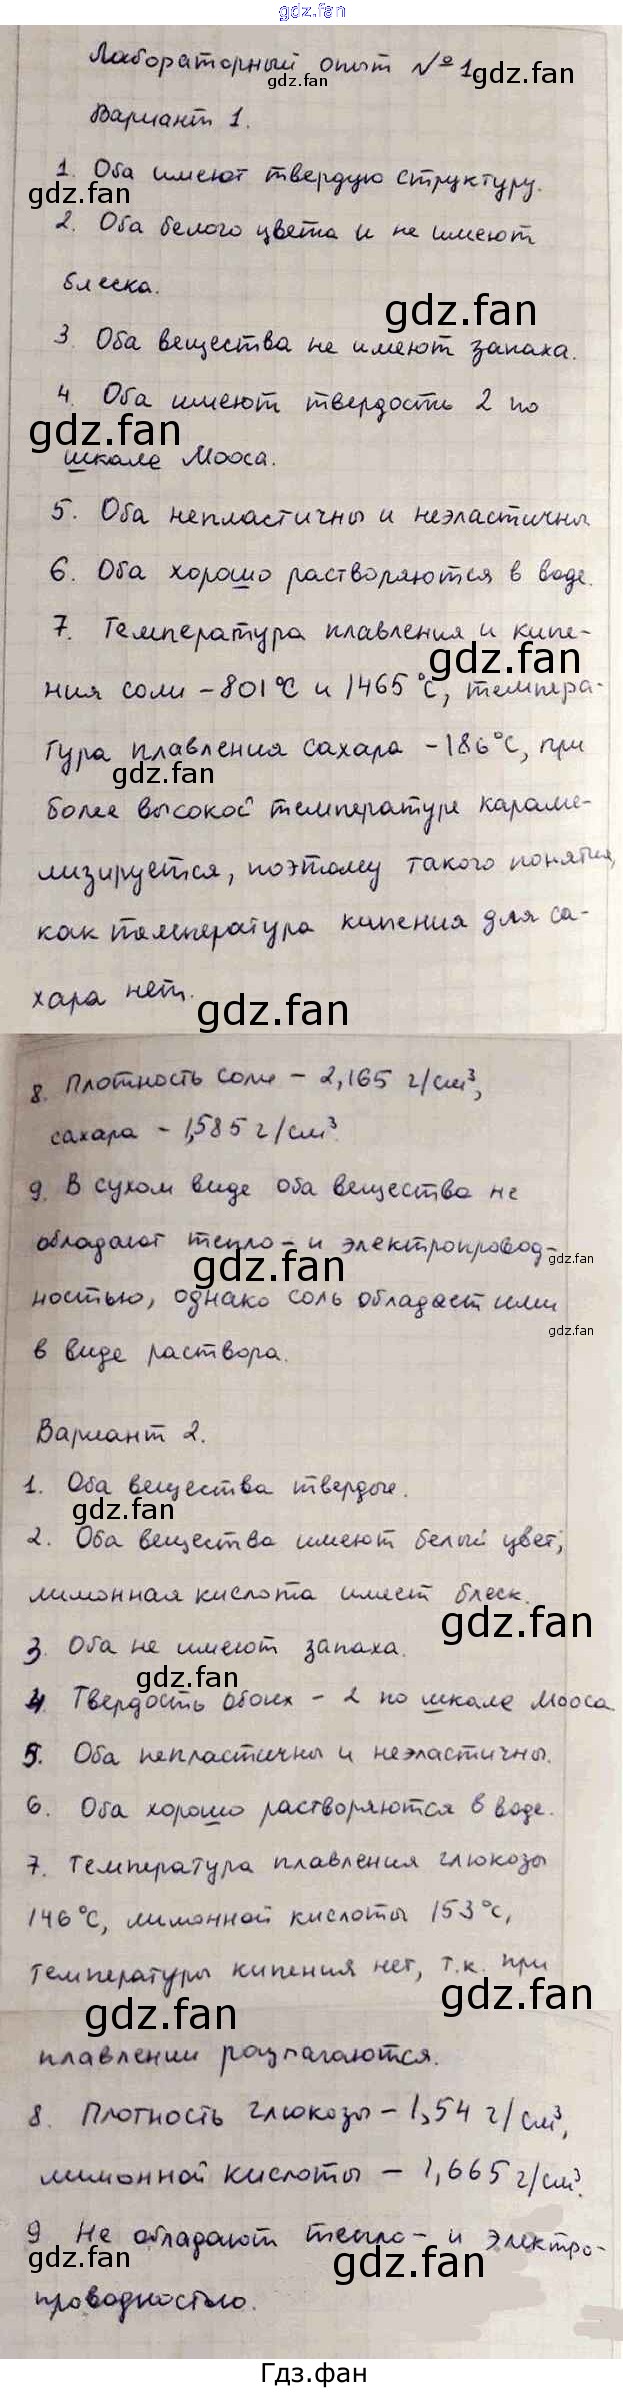 gdz.fan
Лабораторный опыт №1.
gdz.fan
gdz.fan
Вариант 1.
1. Оба имеют твердую структуру.
gdz.fan
2. Оба белого цвета и не имеют
блеска.
gdz.fan
3. Оба вещества не имеют запаха.
4. Оба имеют твердость 2 по
gdz.fan
шкале Мооса.
5. Оба непластичны и неэластичны
6. Оба хорошо растворяются в воде.
7. Температура плавления и кипе-
gdz.fan
ния соли - 801°C и 1465°C, темпера-
тура плавления сахара - 186°C, при
gdz.fan
более высокой температуре караме-
лизируется, поэтому такого понятия,
как температура кипения для са-
хара нет.
gdz.fan
8. Плотность соли - 2,165 г/см³,
сахара - 1,585 г/см³.
9. В сухом виде оба вещества не
обладают тепло- и электропровод-
gdz.fan
gdz.fan
ностью, однако соль обладает ими
gdz.fan
в виде раствора.
Вариант 2.
1. Оба вещества твердые.
gdz.fan
2. Оба вещества имеют белый цвет,
лимонная кислота имеет блеск.
gdz.fan
3. Оба не имеют запаха.
gdz.fan
4. Твердость обоих - 2 по шкале Мооса
5. Оба непластичны и неэластичны.
6. Оба хорошо растворяются в воде.
7. Температура плавления глюкозы
146°C, лимонной кислоты 153°C,
температуры кипения нет, т.к. при
gdz.fan
gdz.fan
плавлении разлагаются.
8. Плотность глюкозы - 1,54 г/см³,
лимонной кислоты - 1,665 г/см³.
9 Не обладают тепло- и электро-
gdz.fan
gdz.fan
проводностью.
Гдз.фан